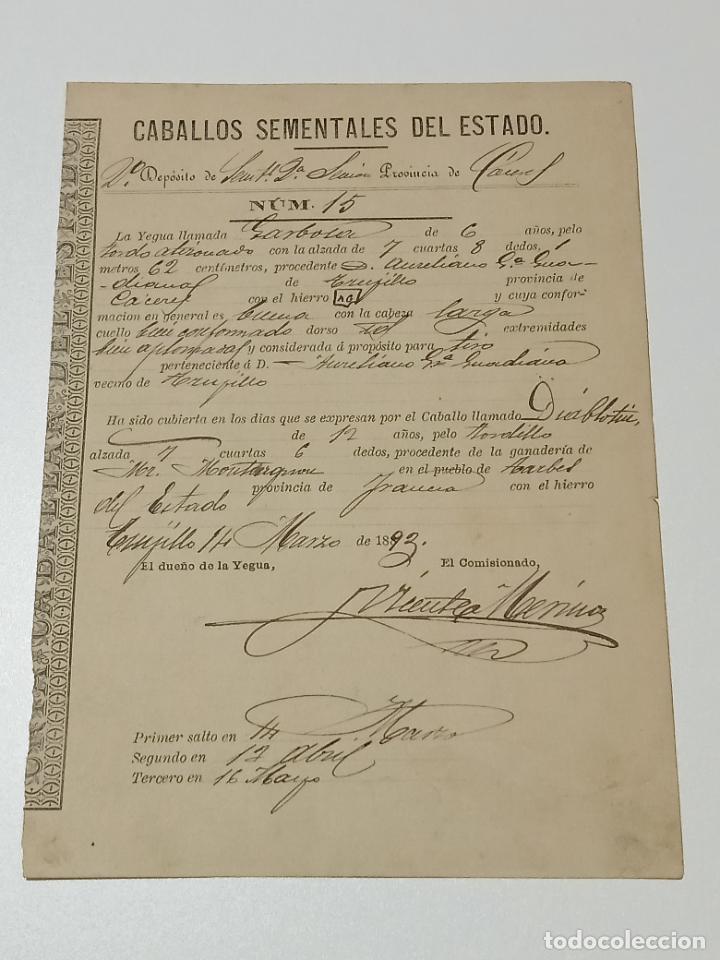 CABALLOS SEMENTALES DEL ESTADO.
2º Depósito de Semt.s 2ª Sección Provincia de Cáceres
NÚM. 15
La Yegua llamada Garbosa de 6 años, pelo
tordo atizonado con la alzada de 7 cuartas 8 dedos, 1
metros 62 centímetros, procedente D. Aureliano Gª Gua-
diana de Trujillo provincia de
Cáceres con el hierro AG y cuya confor-
macion en general es buena con la cabeza larga
cuello bien conformado dorso id. extremidades
bien aplomadas y considerada á propósito para tiro
perteneciente á D. Aureliano Gª Guadiana
vecino de Trujillo
Ha sido cubierta en los dias que se expresan por el Caballo llamado Diablotin,
de 12 años, pelo tordillo
alzada 7 cuartas 6 dedos, procedente de la ganadería de
Mr. en el pueblo de Tarbes
provincia de Francia con el hierro
del Estado
Trujillo 14 Marzo de 1893.
El dueño de la Yegua, El Comisionado,
Vicente Merino
Primer salto en 14 Marzo
Segundo en 12 Abril
Tercero en 16 Mayo
DEL ESTADO
todocoleccion
todocoleccion.net